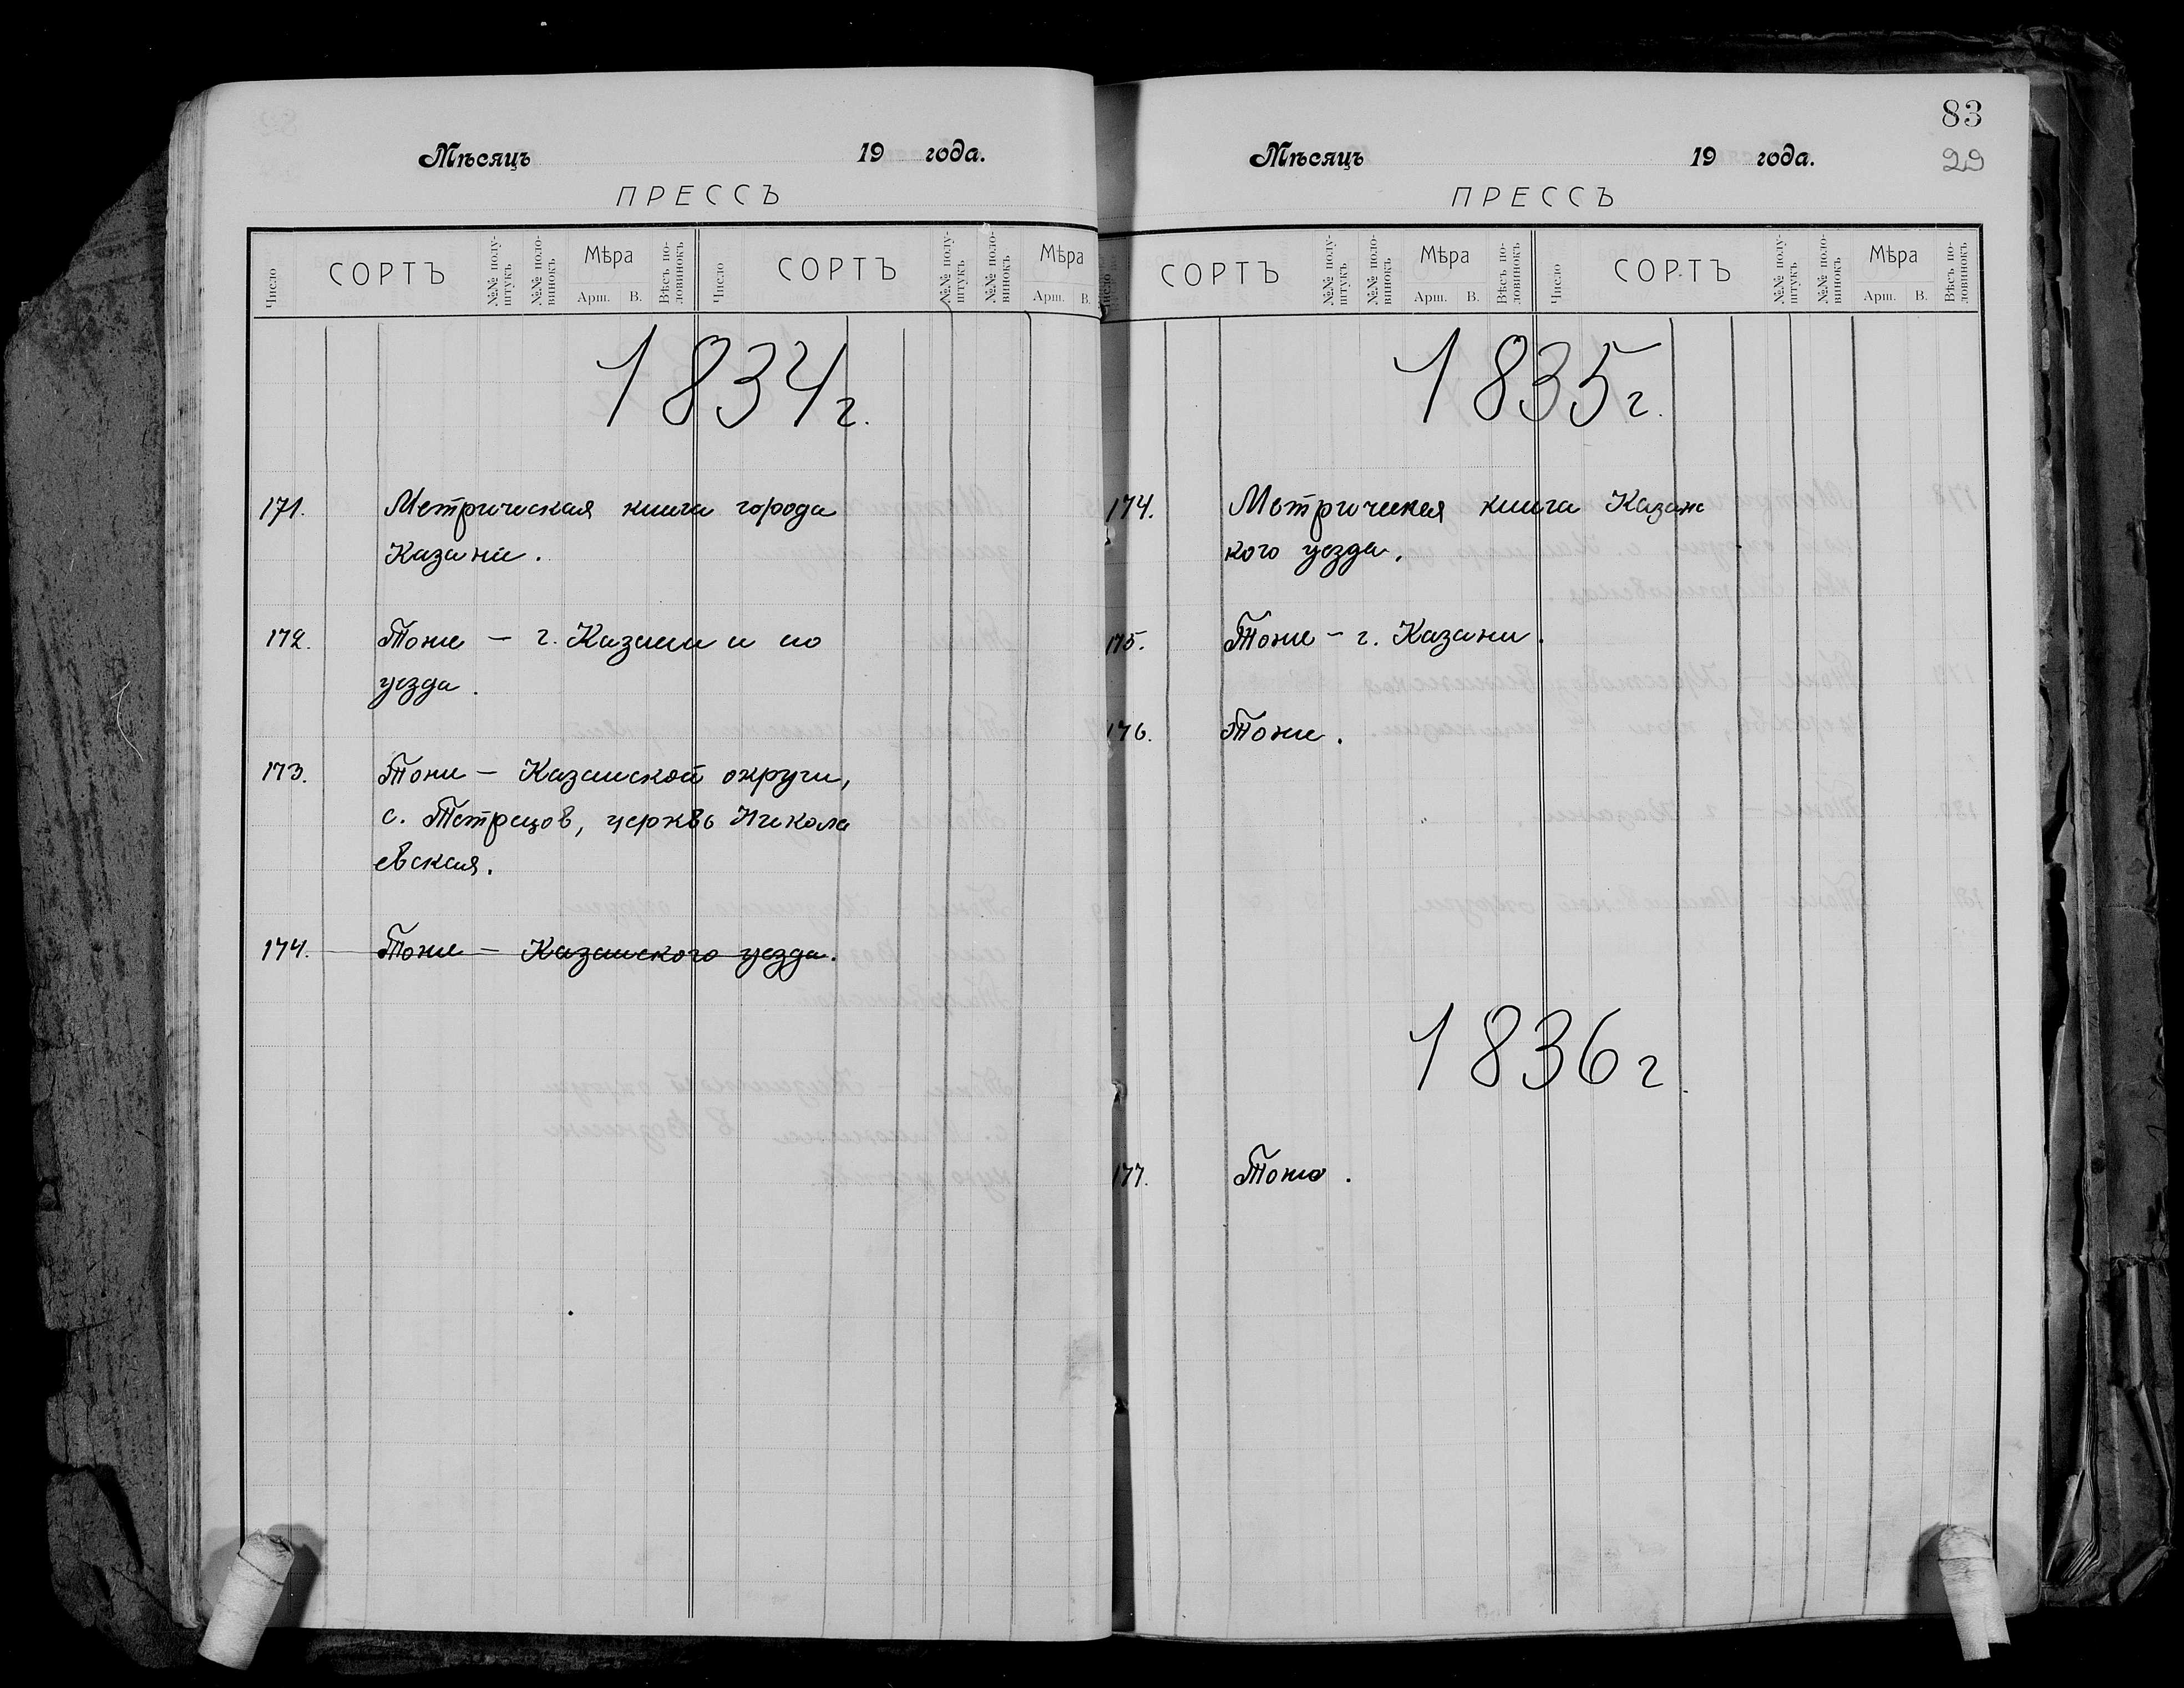 Мѣсяцъ 19 года.
ПРЕССЪ
Число СОРТЪ №№ полуштукъ №№ половинокъ Мѣра Арш. В. Вѣсъ половинокъ Число СОРТЪ №№ полуштукъ №№ половинокъ Мѣра Арш. В.
1834 г.
171. Метрическая книга города
Казани.
172. Тоже – г. Казани и по
уезда.
173. Тоже – Казанской округи,
с. Тетрецов, церквь Никола
евская.
174. Тоже – Казанского уезда.
83
29
Мѣсяцъ 19 года.
ПРЕССЪ
Число СОРТЪ №№ полуштукъ №№ половинокъ Мѣра Арш. В. Вѣсъ половинокъ Число СОРТЪ №№ полуштукъ №№ половинокъ Мѣра Арш. В. Вѣсъ половинокъ
1835 г.
174. Метрическая книга Казанс
кого уезда.
175. Тоже – г. Казани.
176. Тоже.
1836 г.
177. Тоже.